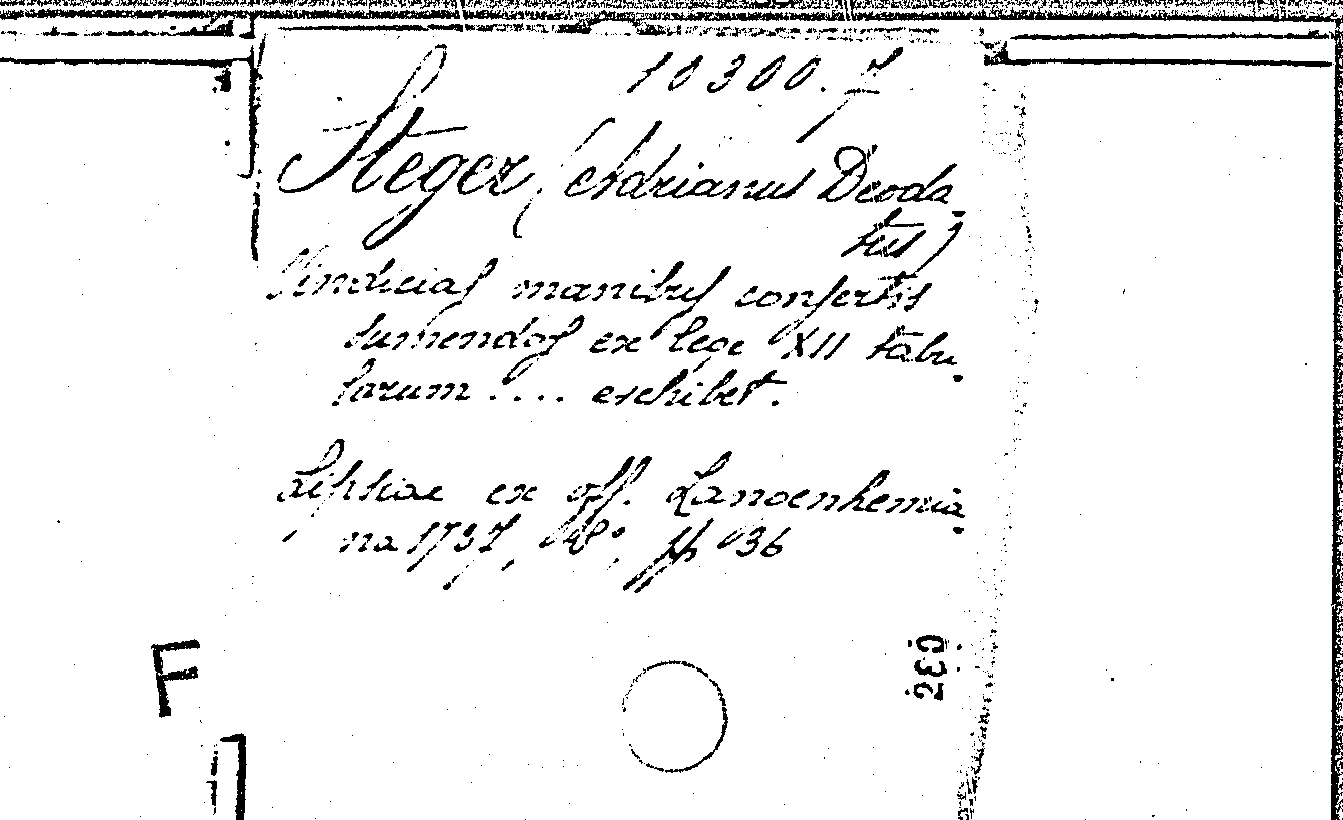 10300. 7
Steger (Adrianus Deoda-
tus)
Vindicias manibus consertis
sumendas ex lege XII tabu-
larum .... exhibet.
Lipsiae ex off. Langenhemia-
na 1737, 4°, pp 36
F